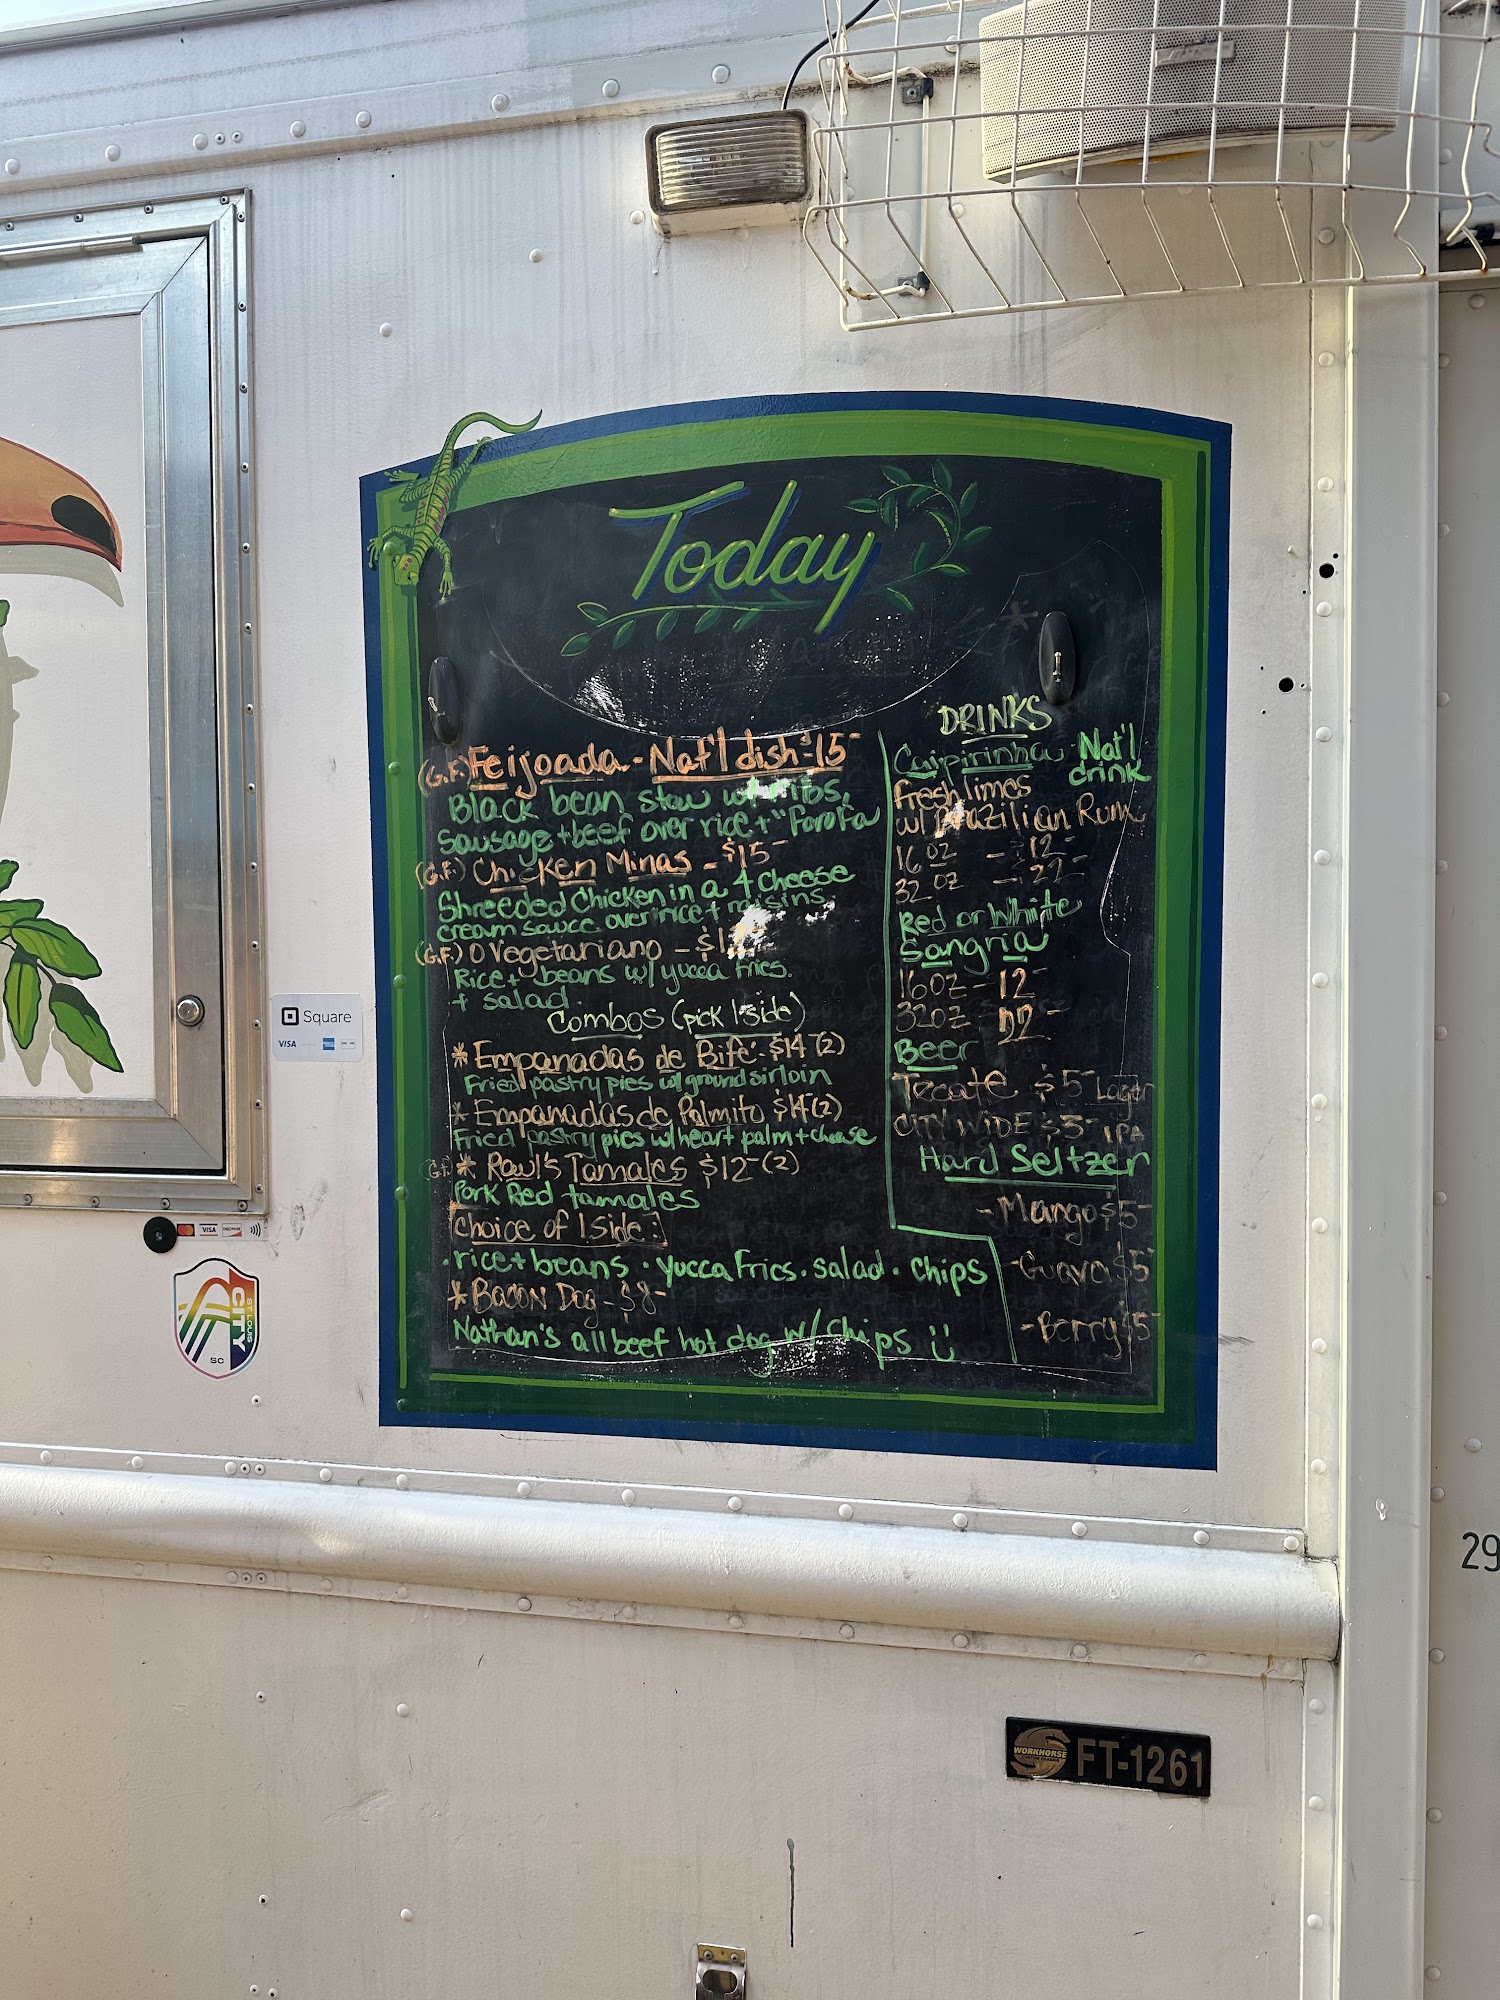 Today
(G.F.) Feijoada - Nat'l dish - $15-
Black bean stew w/ ribs,
sausage + beef over rice + "Farofa"
(G.F.) Chicken Minas - $15-
Shredded Chicken in a 4 Cheese
cream sauce over rice + raisins
(G.F.) O Vegetariano -
Rice + beans w/ yucca fries.
+ salad.
Combos (pick 1 side)
* Empanadas de Bife - $14-(2)
Fried pastry pies w/ ground sirloin
* Empanadas de Palmito $14-(2)
Fried pastry pies w/ heart palm + cheese
(G.F.) * Rawl's Tamales $12-(2)
Pork Red tamales
Choice of 1 side:
. rice + beans . yucca fries . salad . chips
* Bacon Dog - $8-
Nathan's all beef hot dog w/ chips
DRINKS
Caipirinha Nat'l
drink
fresh limes
w/ Brazilian Rum
16 oz - $12-
32 oz - 22-
Red or White
Sangria
16 oz - 12-
32 oz - 22-
Beer
Tecate $5- Lager
CITY WIDE $5- IPA
Hard Seltzer
- Mango $5-
- Guava $5-
- Berry $5-
Square
VISA
VISA
ST LOUIS
CITY
SC
WORKHORSE
FT-1261
29